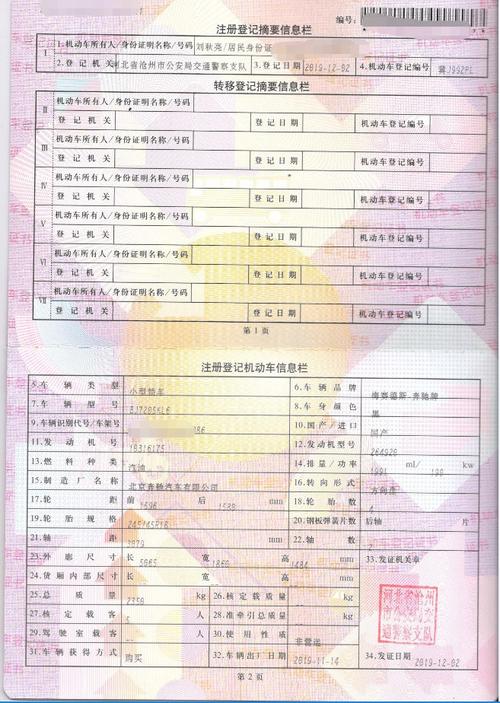 注册登记摘要信息栏
编号:
I 1.机动车所有人/身份证明名称/号码 刘秋亮/居民身份证
2.登记机关 河北省沧州市公安局交通警察支队 3.登记日期 2019-12-02 4.机动车登记编号
转移登记摘要信息栏
II 机动车所有人/身份证明名称/号码
登记机关 登记日期 机动车登记编号
III 机动车所有人/身份证明名称/号码
登记机关 登记日期 机动车登记编号
IV 机动车所有人/身份证明名称/号码
登记机关 登记日期 机动车登记编号
V 机动车所有人/身份证明名称/号码
登记机关 登记日期 机动车登记编号
VI 机动车所有人/身份证明名称/号码
登记机关 登记日期 机动车登记编号
VII 机动车所有人/身份证明名称/号码
登记机关 登记日期 机动车登记编号
第1页
注册登记机动车信息栏
5.车辆类型 小型轿车 6.车辆品牌 梅赛德斯-奔驰牌
7.车辆型号 8.车身颜色 黑
9.车辆识别代号/车架号 10.国产/进口 国产
11.发动机号 18316175 12.发动机型号 264920
13.燃料种类 汽油 14.排量/功率 1991 ml/ kw
15.制造厂名称 北京奔驰汽车有限公司 16.转向形式 方向盘
17.轮距 前 1596 后 1588 mm 18.轮胎数 4
19.轮胎规格 20.钢板弹簧片数 后轴 片
21.轴距 mm 22.轴数
23.外廓尺寸 长 宽 高 mm 33.发证机关章
24.货厢内部尺寸 长 宽 高 mm
25.总质量 kg 26.核定载质量 kg
27.核定载客 5 人 28.准牵引总质量 kg
29.驾驶室载客 人 30.使用性质 非营运
31.车辆获得方式 购买 32.车辆出厂日期 2019-11-14 34.发证日期 2019-12-02
第2页